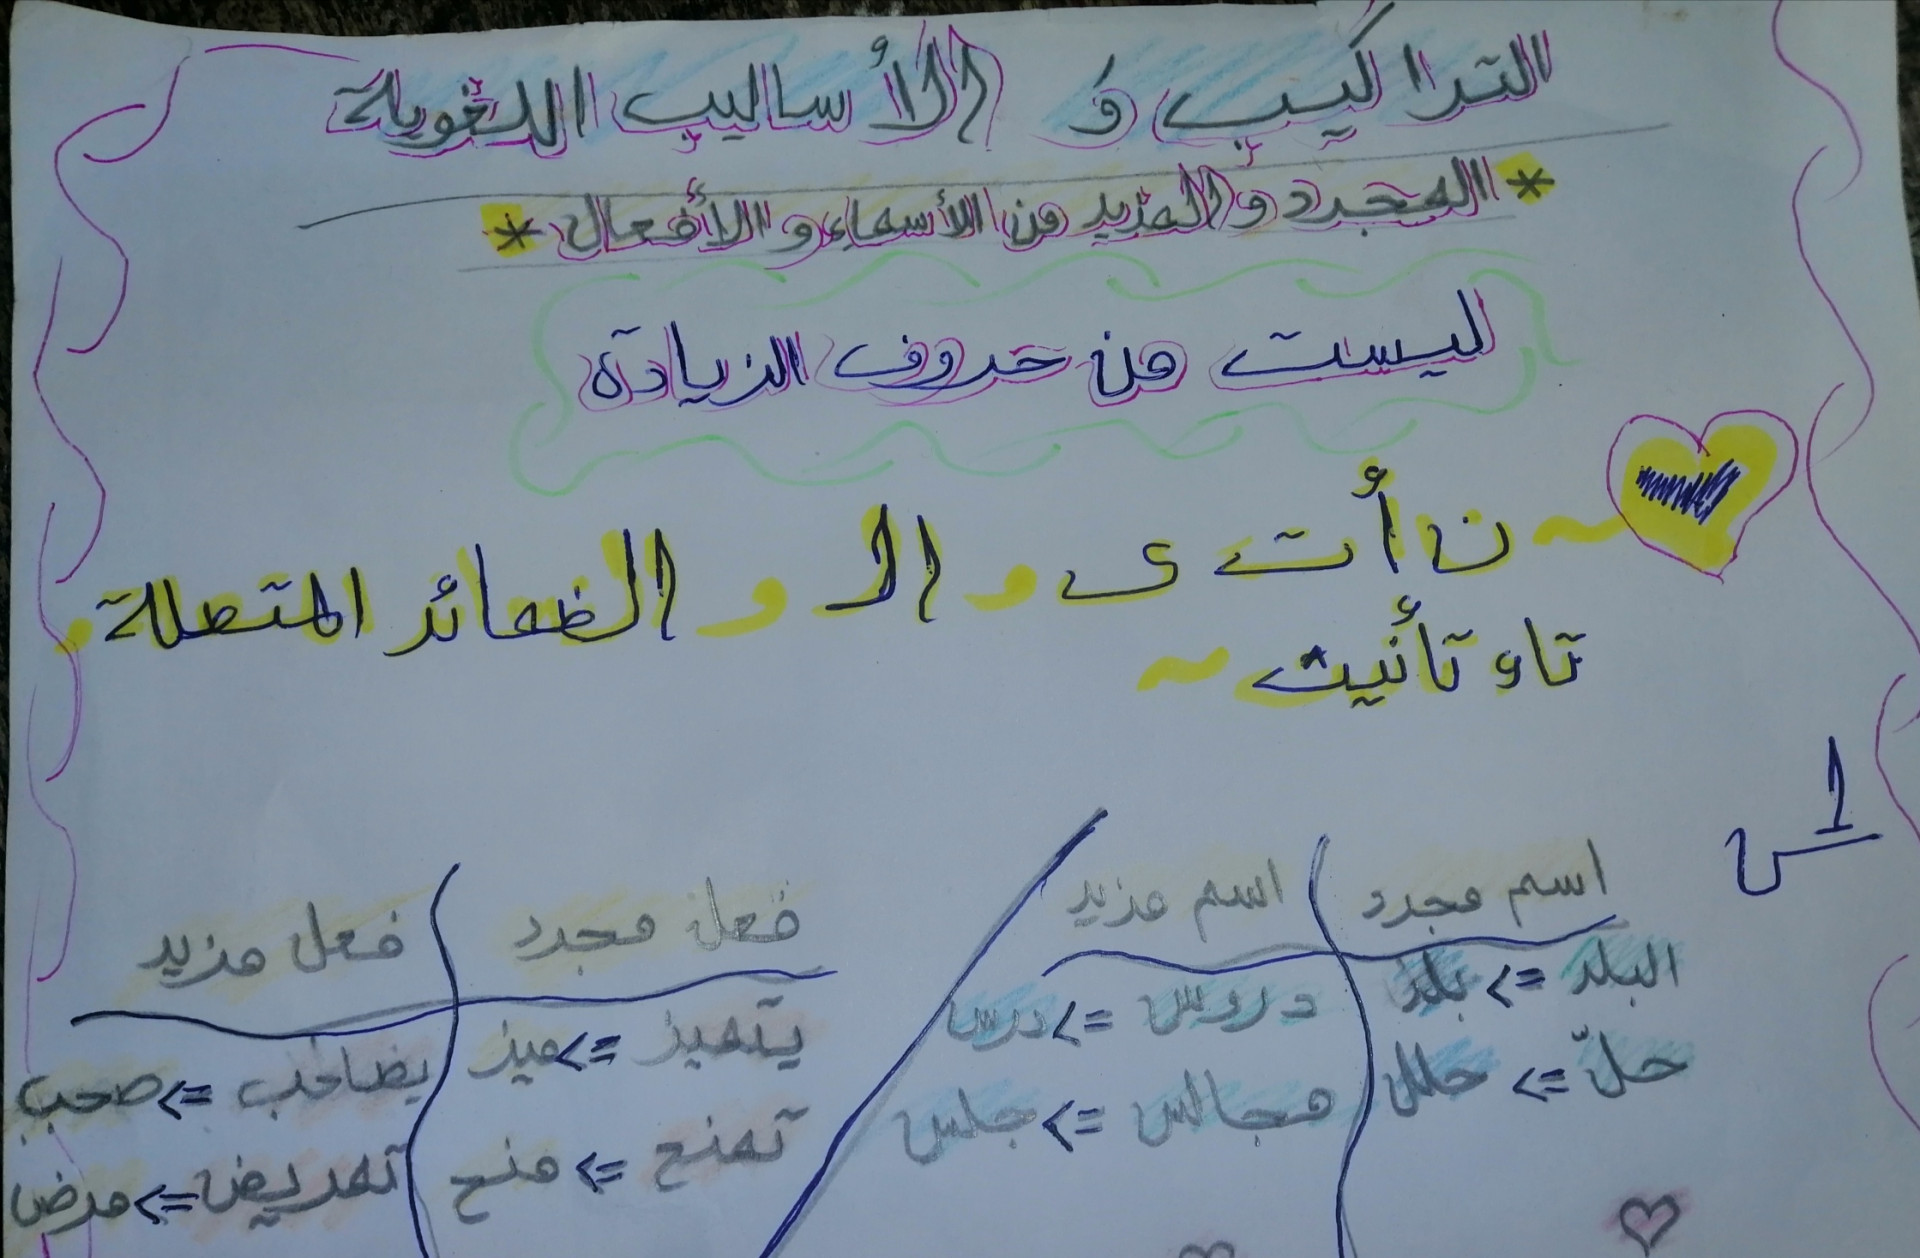 التراكيب و الأساليب اللغوية
* المجرد و المزيد من الأسماء و الأفعال *
ليست من حروف الزيادة
~ ن أ ت ى و ال و الضمائر المتصلة و
تاء تأنيث ~
اسم مجرد
اسم مزيد
البلد => بلد
دروس => درس
حلّ => حلل
مجالس => جلس
فعل مجرد
فعل مزيد
يتميز => ميز
يصاحب => صحب
تمنح => منح
تمريض => مرض